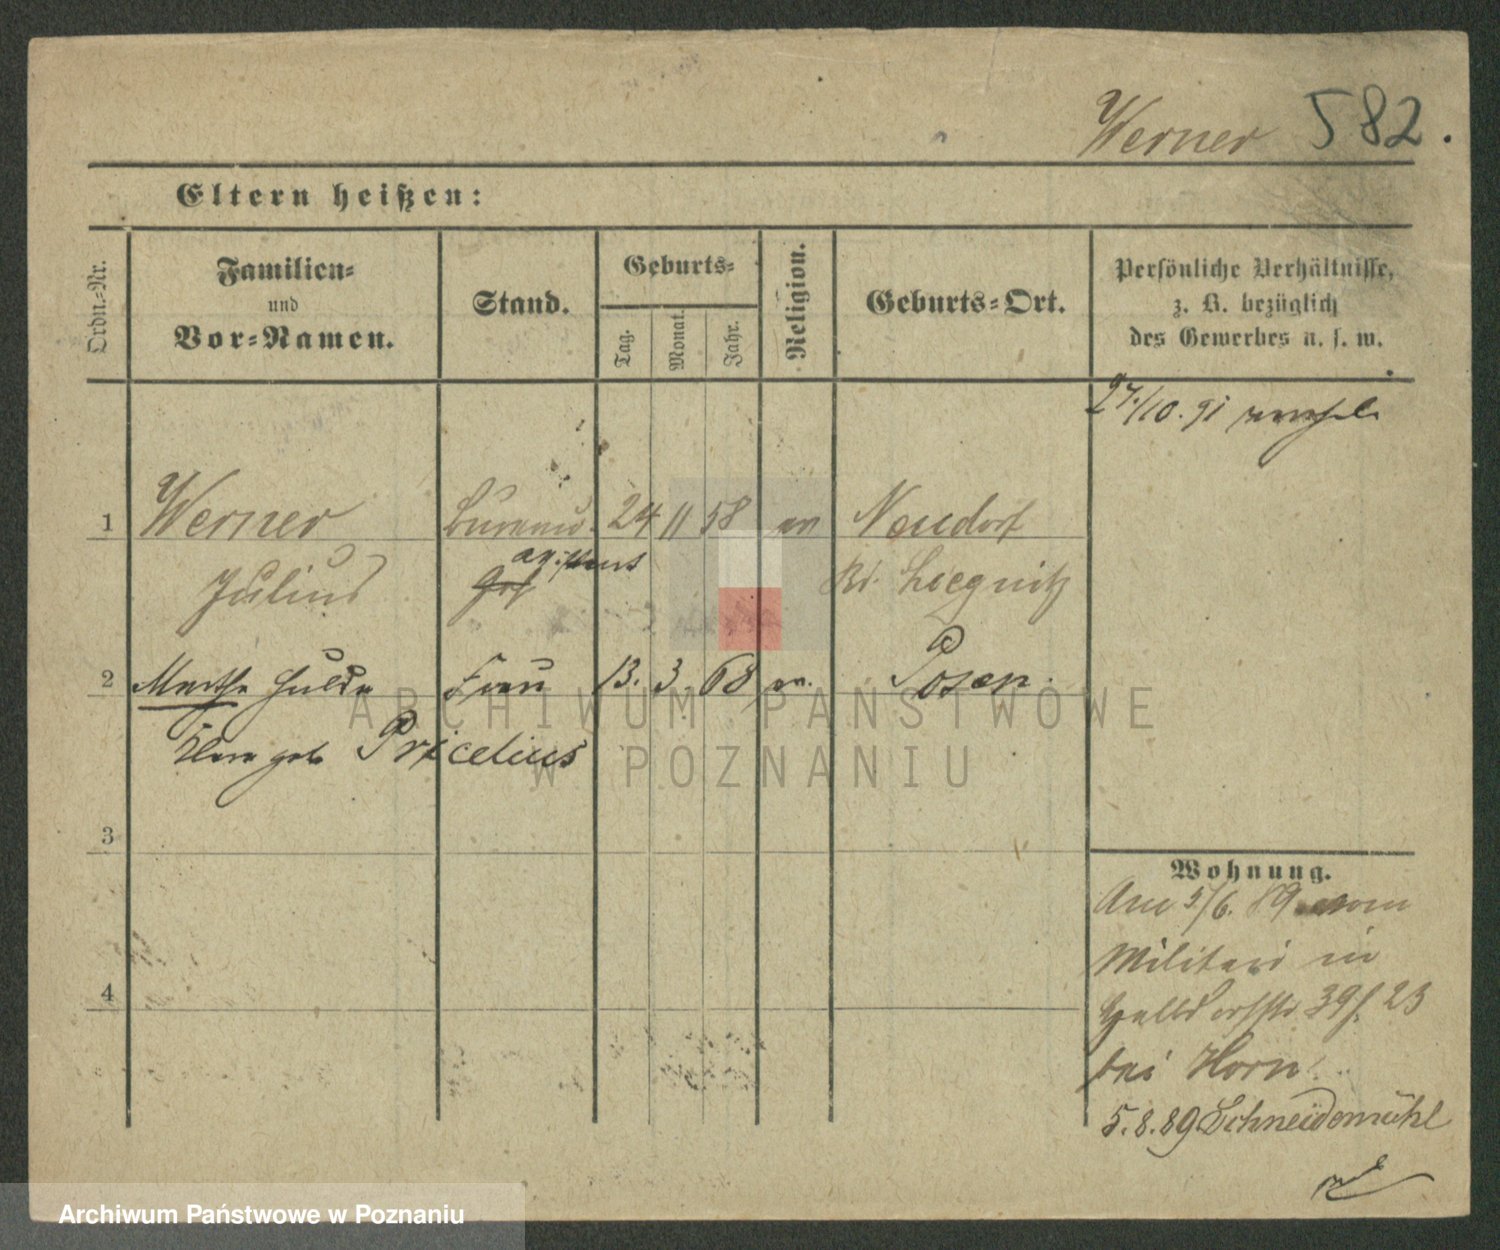 Werner 582.
Eltern heißen:
Ordn.-Nr.
Familien-
und
Vor-Namen.
Stand.
Geburts-
Tag.
Monat.
Jahr.
Religion.
Geburts-Ort.
Persönliche Verhältnisse,
z. B. bezüglich
des Gewerbes u. s. w.
27./10. 91
1 Werner Bureau- 24 11 58 ev Neudorf
assistent
Julius Kr. Liegnitz
2 Martha Hulda Frau 13. 3. 68 ev. Posen.
Klara geb Pricelius
3
4
Wohnung.
Am 5/6. 89 vom
Militär in
39 23
bei Horn.
5.8.89 Schneidemühl
ARCHIWUM PAŃSTWOWE
W POZNANIU
Archiwum Państwowe w Poznaniu